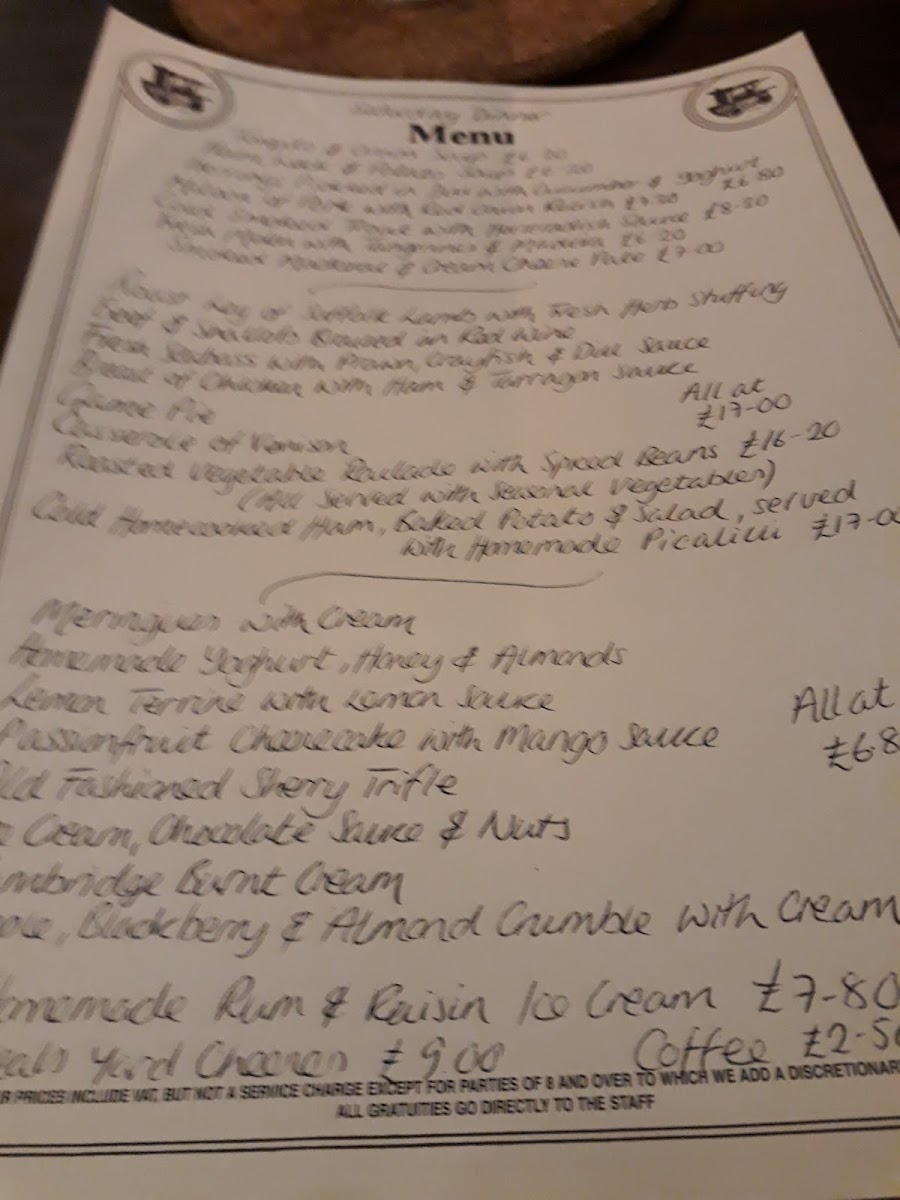 Saturday Dinner
Menu
Tomato & Onion Soup £6.20
Ham, Leek & Potato Soup £6.20
Herrings Pickled in Dill with Cucumber & Yoghurt £6.80
of Pork with Red Onion Relish £7.50
Smoked Tongue with Horseradish Sauce £8-50
Fresh Melon with Tangerines & Madeira £6-20
Smoked Mackerel & Cream Cheese Pate £7-00
Roast Leg of Suffolk Lamb with Fresh Herb Stuffing
Beef & Shallots Braised in Red Wine
Fresh Seabass with Prawn, Crayfish & Dill Sauce
Breast of Chicken with Ham & Tarragon Sauce
Game Pie All at
Casserole of Venison £17-00
Roasted Vegetable Roulade with Spiced Beans £16-20
(All Served with Seasonal Vegetables)
Cold Homecooked Ham, Baked Potato & Salad, served
with Homemade Picalilli £17-0
Meringues with Cream
Homemade Yoghurt, Honey & Almonds
Lemon Terrine with Lemon Sauce All at
Passionfruit Cheesecake with Mango Sauce £6.8
ld Fashioned Sherry Trifle
Cream, Chocolate Sauce & Nuts
mbridge Burnt Cream
Blackberry & Almond Crumble with Cream
omemade Rum & Raisin Ice Cream £7-80
eals Yard Cheeses £9.00 Coffee £2-50
R PRICES INCLUDE VAT, BUT NOT A SERVICE CHARGE EXCEPT FOR PARTIES OF 8 AND OVER TO WHICH WE ADD A DISCRETIONAR
ALL GRATUITIES GO DIRECTLY TO THE STAFF